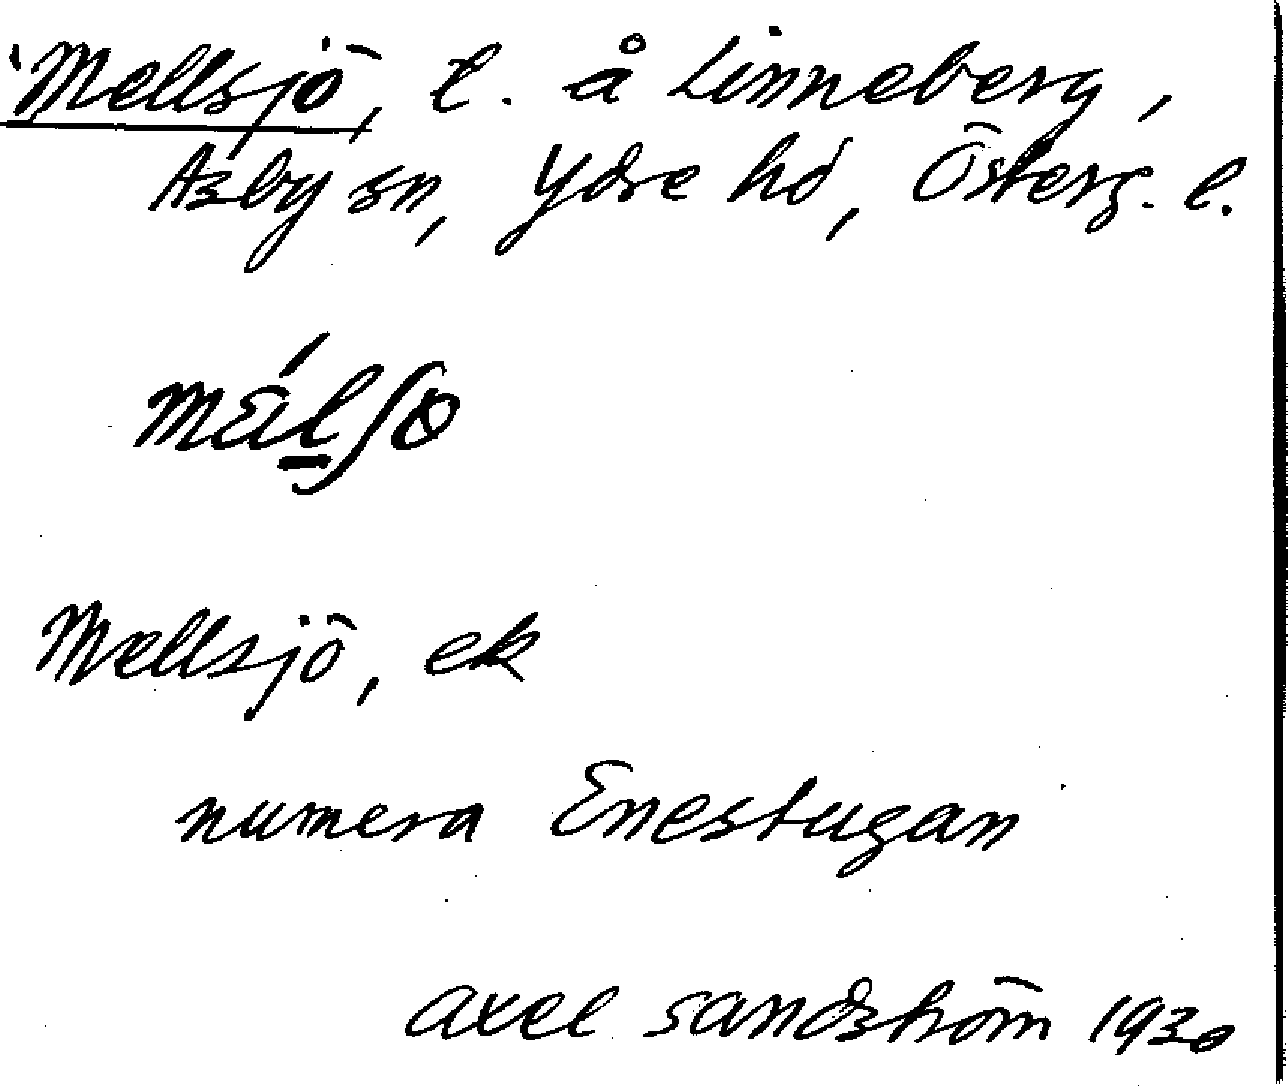 Mellsjö, l. å Linneberg,
Asby sn, Ydre hd, Österg. l.
mä́lʃo
Mellsjö, ek
numera Enestugan
Axel Sandström 1930